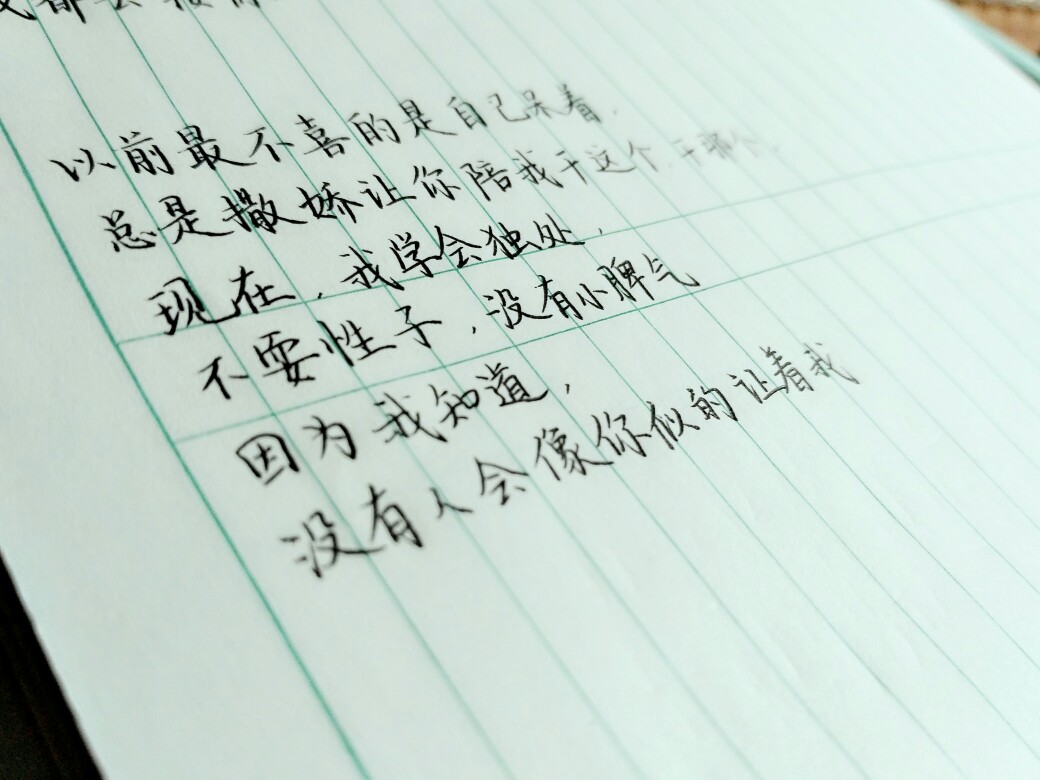 以前最不喜的是自己呆着,
总是撒娇让你陪我干这个,干那个,
现在,我学会独处,
不耍性子,没有小脾气
因为我知道,
没有人会像你似的让着我